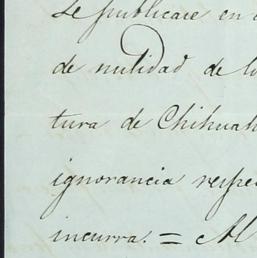 se publicare en
de nulidad de lo
tura de Chihuah
ignorancia respe
incurra. = Al